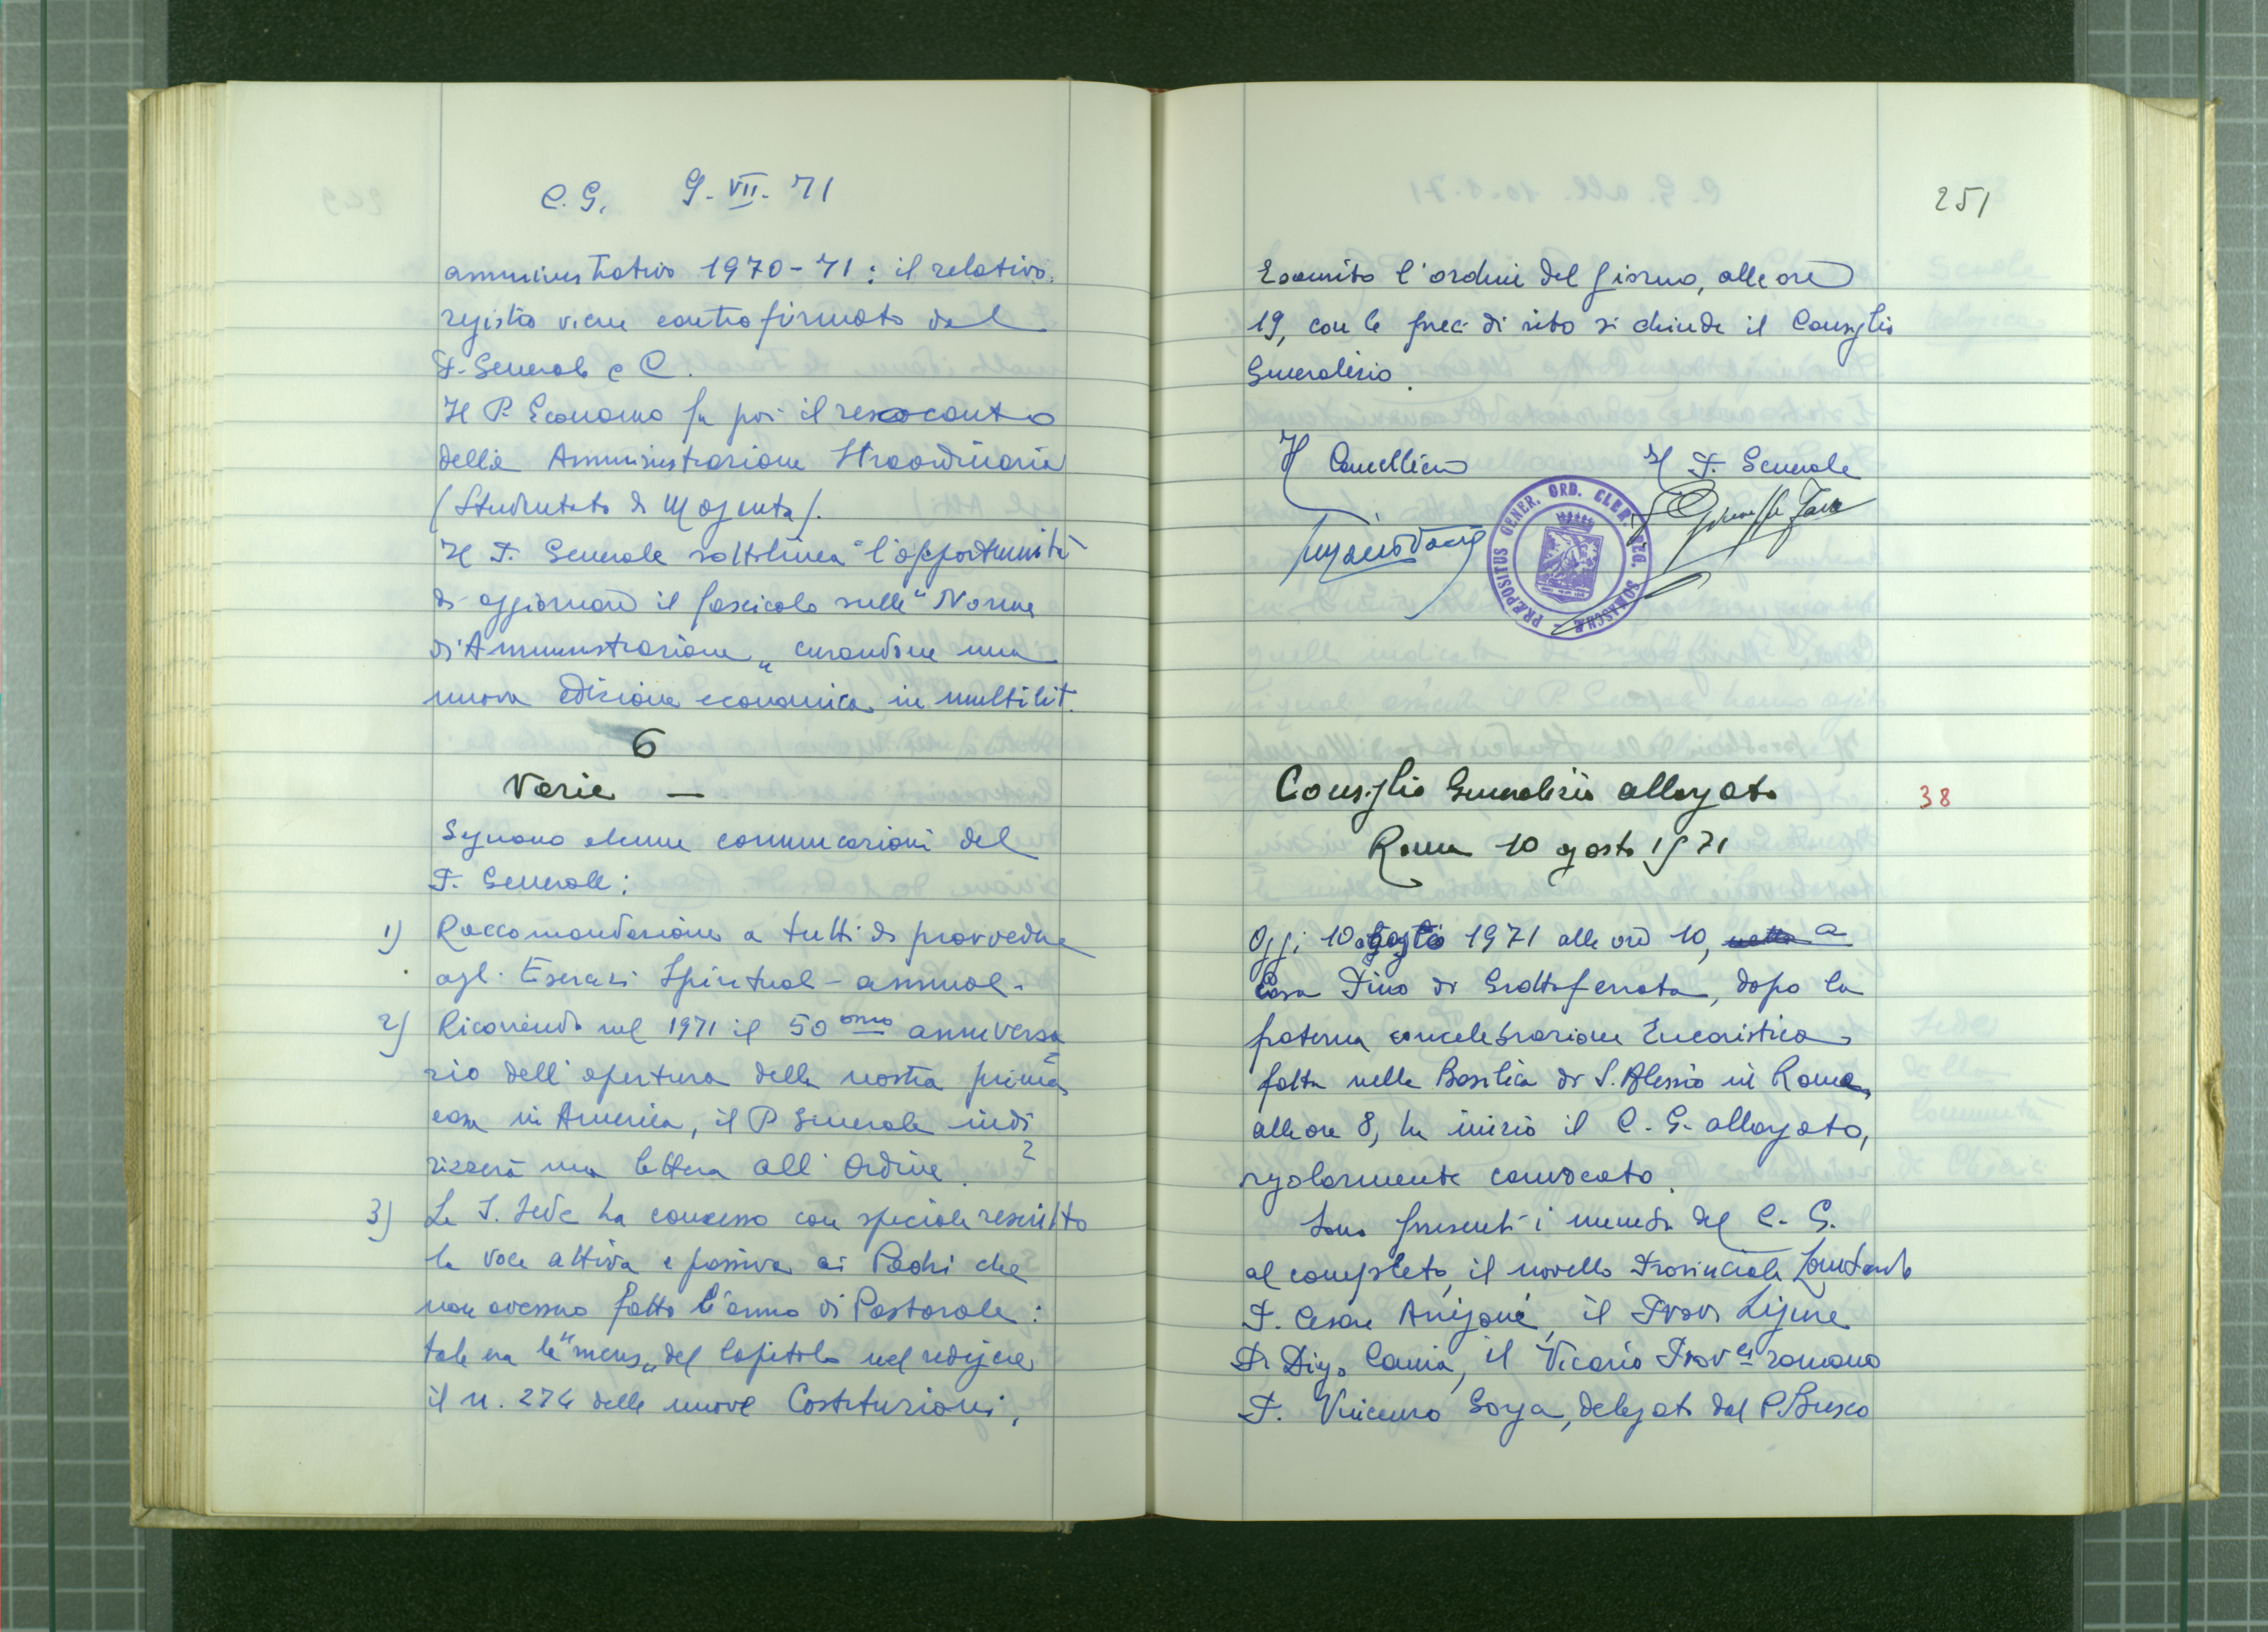 C.G. 9-VII-71
amministrativo 1970-71: il relativo
registro viene controfirmato dal
P. Generale e C.
Il P. Economo fa poi il resoconto
della Amministrazione Straordinaria
(Studentato di Magenta).
Il P. Generale sottolinea l'opportunità
di aggiornare il fascicolo sulle "Norme
di Amministrazione" curandone una
nuova edizione economica in multilit.
6
Varie —
Seguono alcune comunicazioni del
P. Generale:
1) Raccomandazione a tutti di provvedere
agli Esercizi Spirituali annuali.
2) Ricorrendo nel 1971 il 50 esimo anniversa
rio dell'apertura della nostra prima
casa in America, il P. Generale indi
rizzerà una lettera all'Ordine.
3) La S. Sede ha concesso con speciale rescritto
la voce attiva e passiva ai Padri che
non avessero fatto l'anno di Pastorale:
tale era la "mens" del Capitolo nel redigere
il n. 274 delle nuove Costituzioni.
251
Esaurito l'ordine del giorno, alle ore
19, con le preci di rito si chiude il Consiglio
Generalizio.
Il Cancelliere Il P. Generale
PRÆPOSITUS GENER. ORD. CLER. REG. SOMASCHÆ
Consiglio Generalizio allargato
38
Roma 10 agosto 1971
Oggi 10 agosto 1971 alle ore 10, a
Casa Pino di Grottaferrata, dopo la
fraterna concelebrazione Eucaristica
fatta nella Basilica di S. Alessio in Roma,
alle ore 8, ha inizio il C.G. allargato,
regolarmente convocato.
Sono presenti i membri del C.G.
al completo, il novello Provinciale Lombardo
P. Cesare Arrigoni, il Prov. Ligure
P. Diego Camia, il Vicario Prov.le romano
P. Vincenzo Gorga, delegato dal P. Brusco